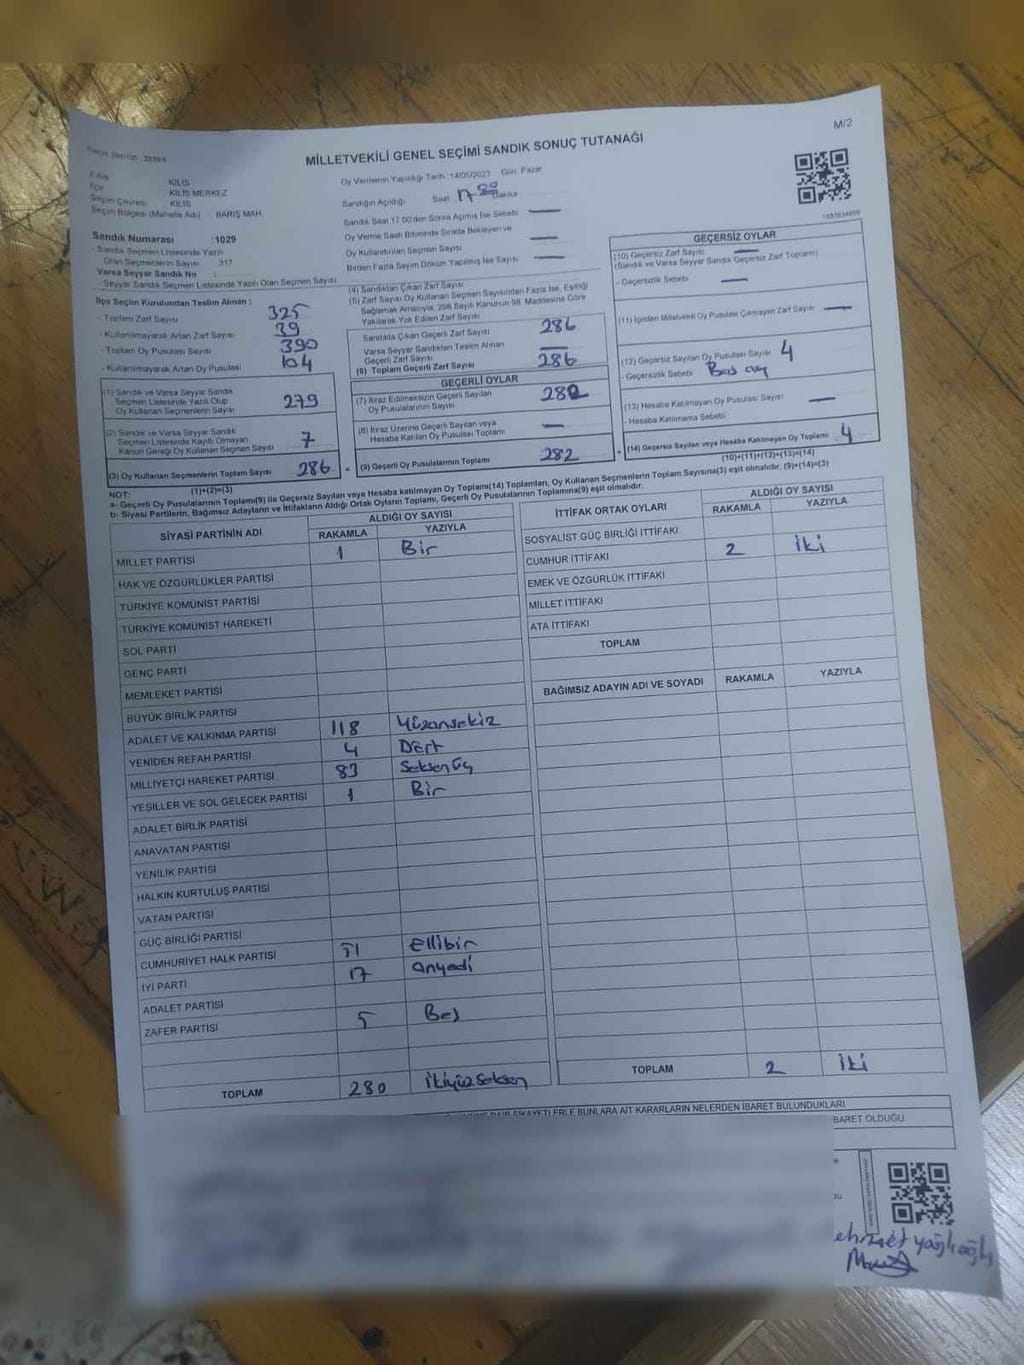 M/2
MİLLETVEKİLİ GENEL SEÇİMİ SANDIK SONUÇ TUTANAĞI
KİLİS
KİLİS MERKEZ
KİLİS
Seçim Bölgesi (Mahalle Adı) BARIŞ MAH.
Oy Vermenin Yapıldığı Tarih :14/05/2023 Gün: Pazar
Sandığın Açıldığı Saat 17 Dakika
Sandık Saat 17.00'den Sonra Açılmış İse Sebebi —
Oy Verme Saati Bitiminde Sırada Bekleyen ve
Oy Kullandırılan Seçmen Sayısı —
Birden Fazla Sayım Döküm Yapılmış İse Sayısı —
Sandık Numarası :1029
- Sandık Seçmen Listesinde Yazılı
Olan Seçmenlerin Sayısı 317
Varsa Seyyar Sandık No :
- Seyyar Sandık Seçmen Listesinde Yazılı Olan Seçmen Sayısı :
İlçe Seçim Kurulundan Teslim Alınan :
- Toplam Zarf Sayısı 325
- Kullanılmayarak Artan Zarf Sayısı 39
- Toplam Oy Pusulası Sayısı 390
- Kullanılmayarak Artan Oy Pusulası 104
(1) Sandık ve Varsa Seyyar Sandık
Seçmen Listesinde Yazılı Olup
Oy Kullanan Seçmenlerin Sayısı 279
(2) Sandık ve Varsa Seyyar Sandık
Seçmen Listesinde Kayıtlı Olmayan
Kanun Gereği Oy Kullanan Seçmen Sayısı 7
(3) Oy Kullanan Seçmenlerin Toplam Sayısı 286
(1)+(2)=(3)
(4) Sandıktan Çıkan Zarf Sayısı
(5) Zarf Sayısı Oy Kullanan Seçmen Sayısından Fazla İse, Eşitliği
Sağlamak Amacıyla, 298 Sayılı Kanunun 98. Maddesine Göre
Yakılarak Yok Edilen Zarf Sayısı
Sandıkta Çıkan Geçerli Zarf Sayısı 286
Varsa Seyyar Sandıktan Teslim Alınan
Geçerli Zarf Sayısı —
(6) Toplam Geçerli Zarf Sayısı 286
GEÇERLİ OYLAR
(7) İtiraz Edilmeksizin Geçerli Sayılan
Oy Pusulalarının Sayısı 282
(8) İtiraz Üzerine Geçerli Sayılan veya
Hesaba Katılan Oy Pusulası Toplamı —
= (9) Geçerli Oy Pusulalarının Toplamı 282
GEÇERSİZ OYLAR
(10) Geçersiz Zarf Sayısı —
(Sandık ve Varsa Seyyar Sandık Geçersiz Zarf Toplamı)
- Geçersizlik Sebebi —
(11) İçinden Milletvekili Oy Pusulası Çıkmayan Zarf Sayısı —
(12) Geçersiz Sayılan Oy Pusulası Sayısı 4
- Geçersizlik Sebebi Boş oy
(13) Hesaba Katılmayan Oy Pusulası Sayısı —
- Hesaba Katılmama Sebebi
+ (14) Geçersiz Sayılan veya Hesaba Katılmayan Oy Toplamı 4
(10)+(11)+(12)+(13)=(14)
NOT:
a- Geçerli Oy Pusulaları Toplamı(9) ile Geçersiz Sayılan veya Hesaba katılmayan Oy Toplamı(14) Toplamları, Oy Kullanan Seçmenlerin Toplam Sayısına(3) eşit olmalıdır. (9)+(14)=(3)
b- Siyasi Partilerin, Bağımsız Adayların ve İttifakların Aldığı Ortak Oyların Toplamı, Geçerli Oy Pusulalarının Toplamına(9) eşit olmalıdır.
SİYASİ PARTİNİN ADI ALDIĞI OY SAYISI
RAKAMLA YAZIYLA
MİLLET PARTİSİ 1 Bir
HAK VE ÖZGÜRLÜKLER PARTİSİ
TÜRKİYE KOMÜNİST PARTİSİ
TÜRKİYE KOMÜNİST HAREKETİ
SOL PARTİ
GENÇ PARTİ
MEMLEKET PARTİSİ
BÜYÜK BİRLİK PARTİSİ
ADALET VE KALKINMA PARTİSİ 118 Yüzonsekiz
YENİDEN REFAH PARTİSİ 4 Dört
MİLLİYETÇİ HAREKET PARTİSİ 83 Seksen üç
YEŞİLLER VE SOL GELECEK PARTİSİ 1 Bir
ADALET BİRLİK PARTİSİ
ANAVATAN PARTİSİ
YENİLİK PARTİSİ
HALKIN KURTULUŞ PARTİSİ
VATAN PARTİSİ
GÜÇ BİRLİĞİ PARTİSİ
CUMHURİYET HALK PARTİSİ 51 Ellibir
İYİ PARTİ 17 Onyedi
ADALET PARTİSİ
ZAFER PARTİSİ 5 Beş
TOPLAM 280 İkiyüzseksen
İTTİFAK ORTAK OYLARI ALDIĞI OY SAYISI
RAKAMLA YAZIYLA
SOSYALİST GÜÇ BİRLİĞİ İTTİFAKI
CUMHUR İTTİFAKI 2 iki
EMEK VE ÖZGÜRLÜK İTTİFAKI
MİLLET İTTİFAKI
ATA İTTİFAKI
TOPLAM
BAĞIMSIZ ADAYIN ADI VE SOYADI RAKAMLA YAZIYLA
TOPLAM 2 iki
ŞİKAYETLERLE BUNLARA AİT KARARLARIN NELERDEN İBARET BULUNDUKLARI
BARET OLDUĞU
ehmet yağlıoğlu